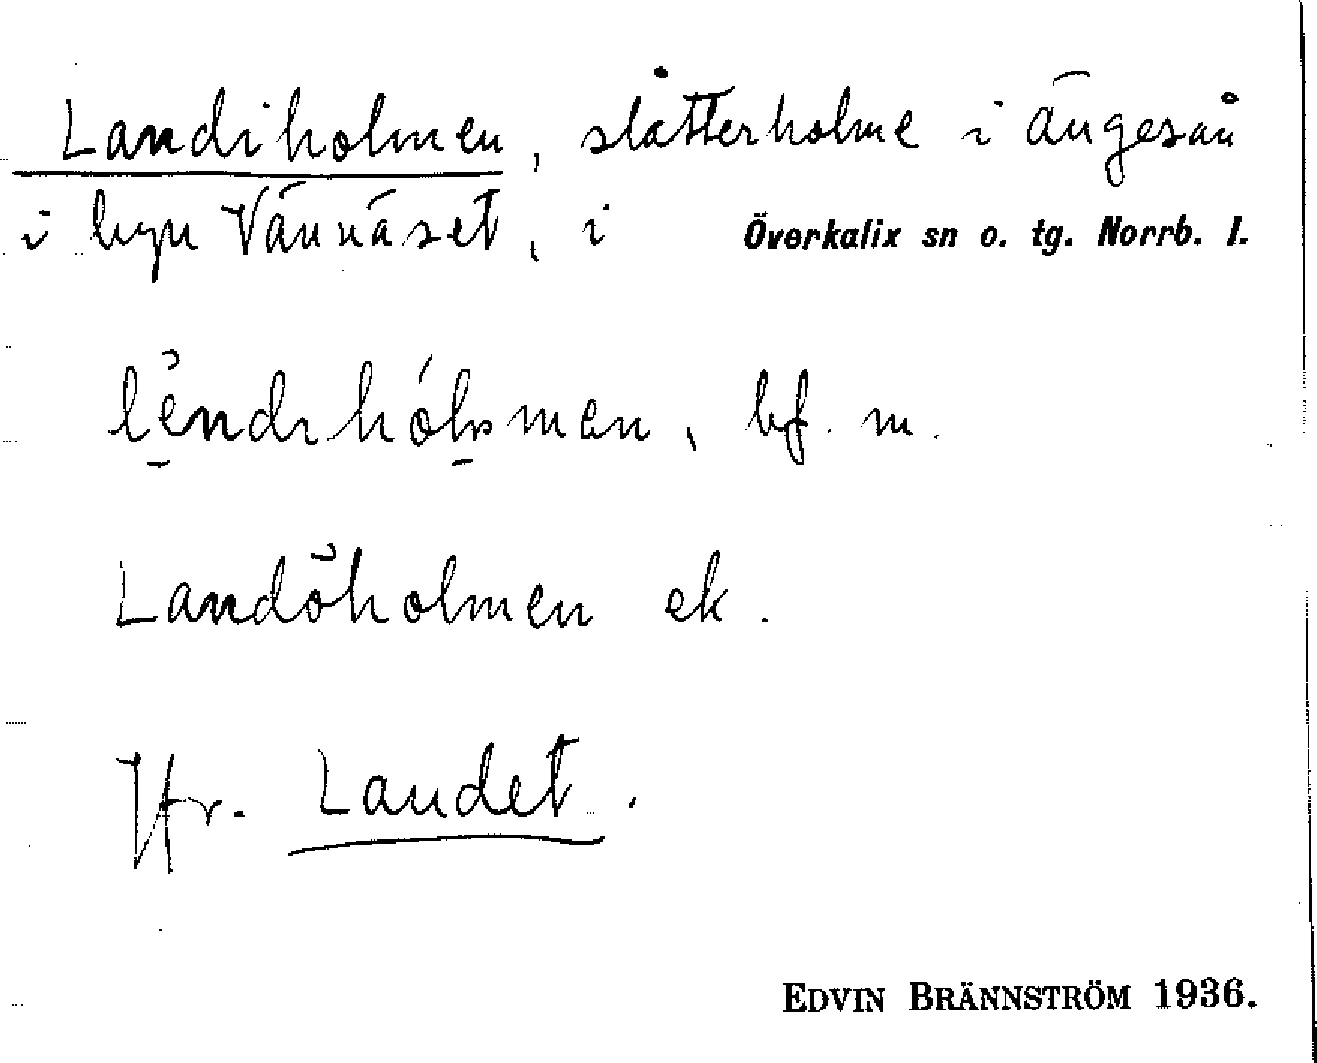 Landiholmen, slåtterholme i Ängesån
i byn Vännäset, i Överkalix sn o. tg. Norrb. l.
bf. m.
Landöholmen ek.
Jfr. Landet.
EDVIN BRÄNNSTRÖM 1936.